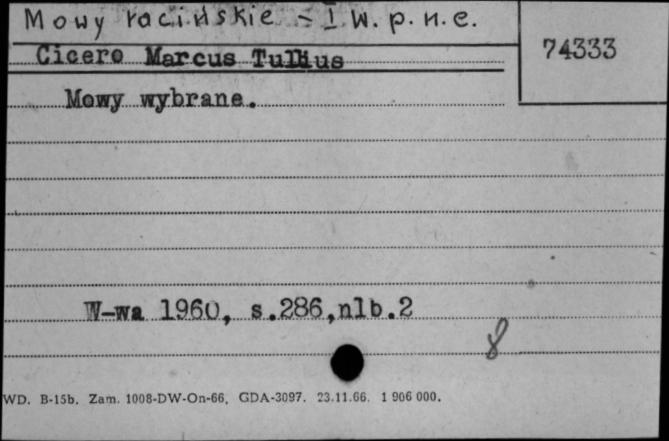 Mowy racińskie - I w. p. n. e.
74333
Cicero Marcus Tullius
Mowy wybrane.
W-wa 1960, s.286,nlb.2
8
WD. B-15b. Zam. 1008-DW-On-66. GDA-3097. 23.11.66. 1 906 000.